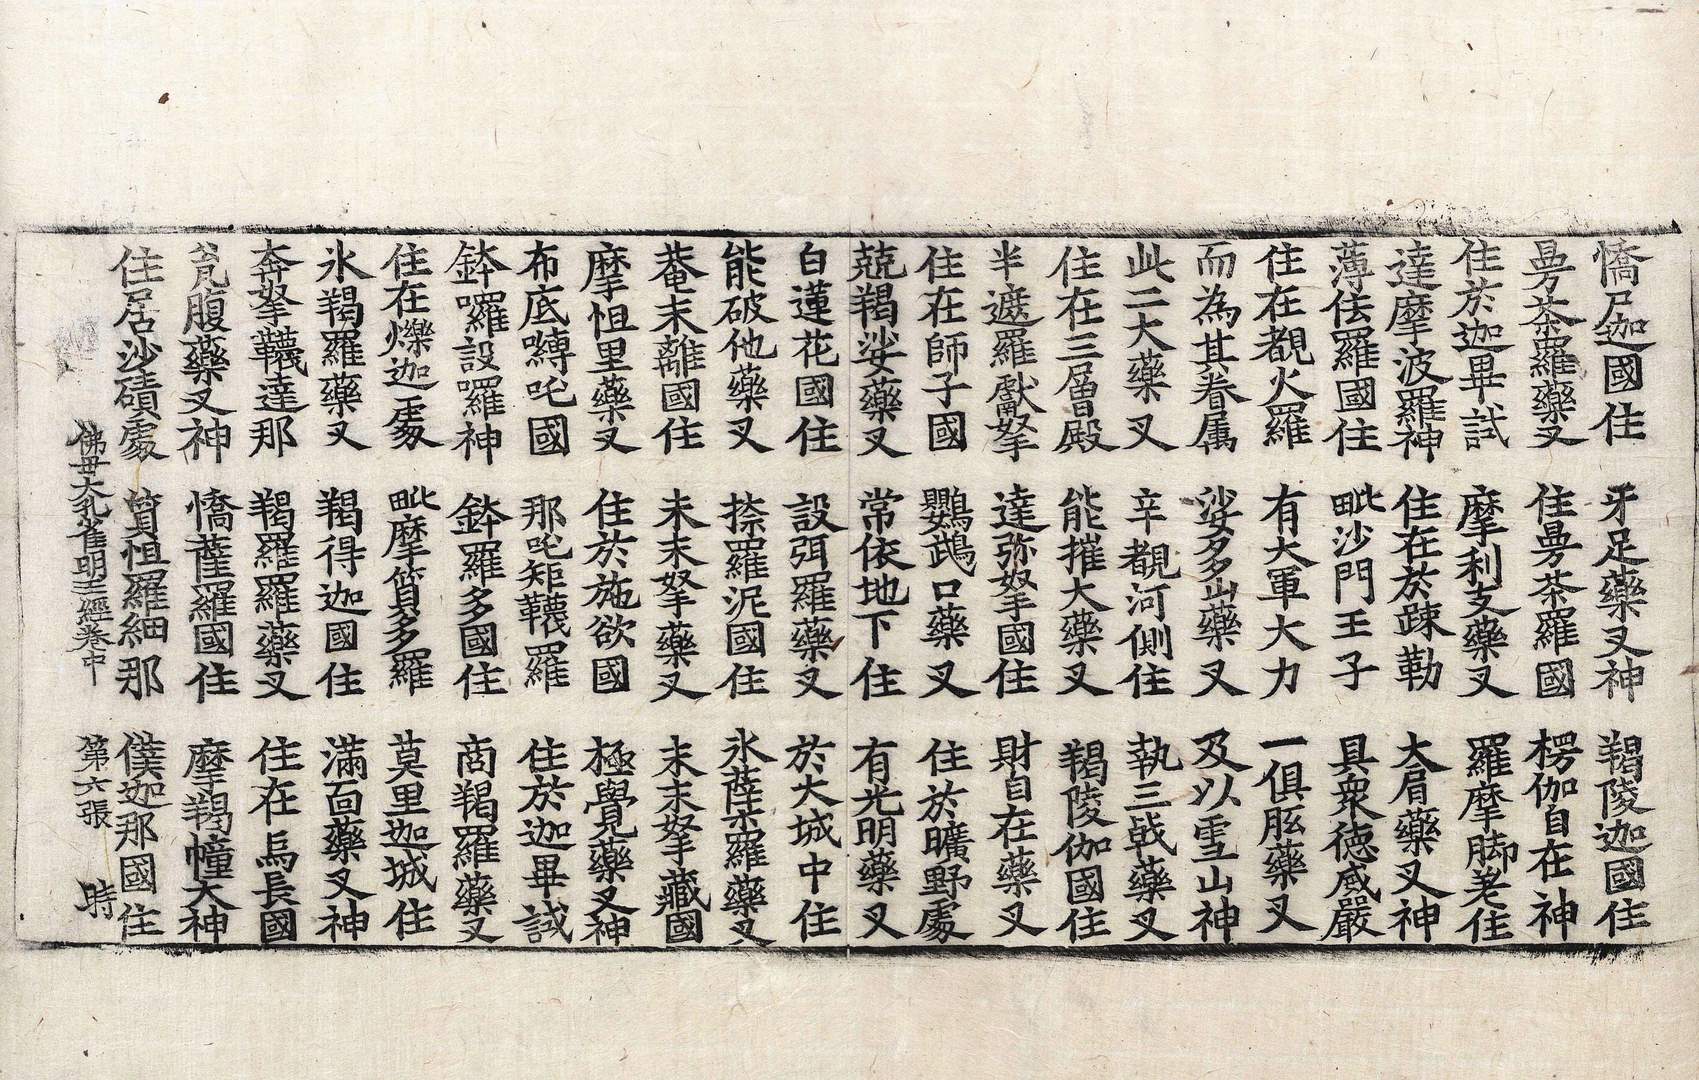 憍尸迦國住　牙足藥叉神　羯陵迦國住
曼荼羅藥叉　住曼荼羅國　楞伽自在神
住於迦畢試　摩利支藥叉　羅摩脚差住
達摩波羅神　住在於疎勒　大肩藥叉神
薄佉羅國住　毗沙門王子　具衆德威嚴
住在覩火羅　有大軍大力　一俱胝藥叉
而為其眷属　娑多山藥叉　及以雪山神
此二大藥叉　辛覩河側住　執三戟藥叉
住在三層殿　能摧大藥叉　羯陵伽國住
半遮羅獻拏　達弥拏國住　財自在藥叉
住在師子國　鸚鵡口藥叉　住於曠野處
兢羯娑藥叉　常依地下住　有光明藥叉
白蓮花國住　設弭羅藥叉　於大城中住
能破他藥叉　捺羅泥國住　氷蘖羅藥叉
菴末離國住　末末拏藥叉　末末拏藏國
摩怛里藥叉　住於施欲國　極覺藥叉神
布底嚩吒國　那吒矩韈羅　住於迦畢試
鉢囉設囉神　鉢羅多國住　商羯羅藥叉
住在爍迦處　毗摩質多羅　莫里迦城住
氷羯羅藥叉　羯得迦國住　滿面藥叉神
奔拏韈達那　羯羅羅藥叉　住在烏長國
甕腹藥叉神　憍薩羅國住　摩羯幢大神
住居沙磧處　質怛羅細那　僕迦那國住
佛母大孔雀明王經卷中　第六張　時